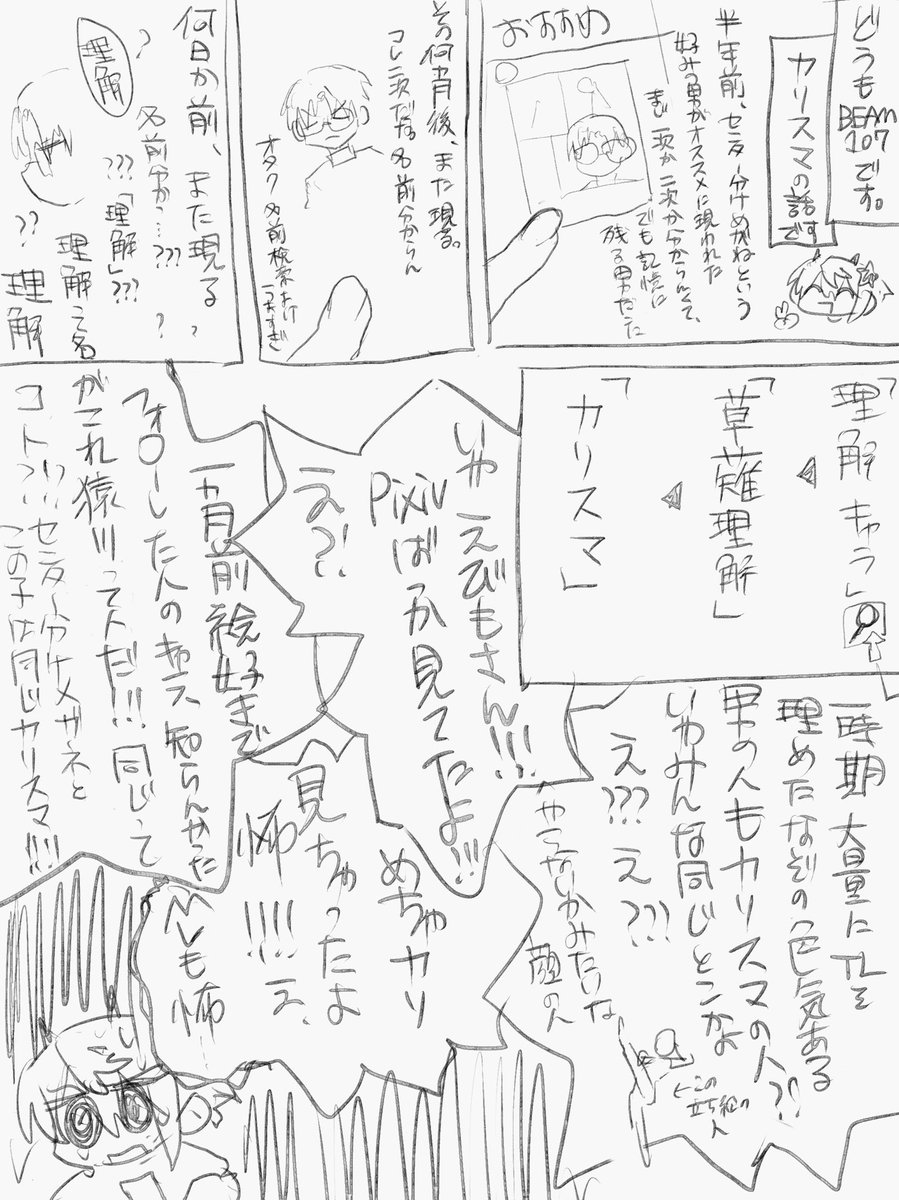 どうも
BEAM
107
です。
カリスマの話
です
半年前、センター分けめがねという
好みの男がオススメに現われた
まじ一次か二次か分からんくて、
でも記憶に
残る男だった
おすすめ
その何ヶ月後、また現る。
コレ二次だな。名前分からん
オタク 名前検索よけ
うますぎ
何日か前、また現る。
?
名前分か…???
???「理解」???
?
理解って名
??
理解
理解
「理解 きゃら」
「草薙理解」
「カリスマ」
一時期大量にTLを
埋めたなぞの色気ある
男の人もカリスマの人?!
いやみんな同じとこかよ
え??? え?!?
やらないかみたいな
顔の人
←この
立ち絵の
人
いや えびもさん!!!
Pixivばっか見てたよ!!!
え?!
一ヵ月前 絵好きで
フォローした人のキャラ 知らんかった
がこれ猿川って人だ!!! 同じって
コト?!?! センター分けメガネと
この子は同じカリスマ!!!!
めちゃカリ
見ちゃったよ
怖!!!! え、
怖